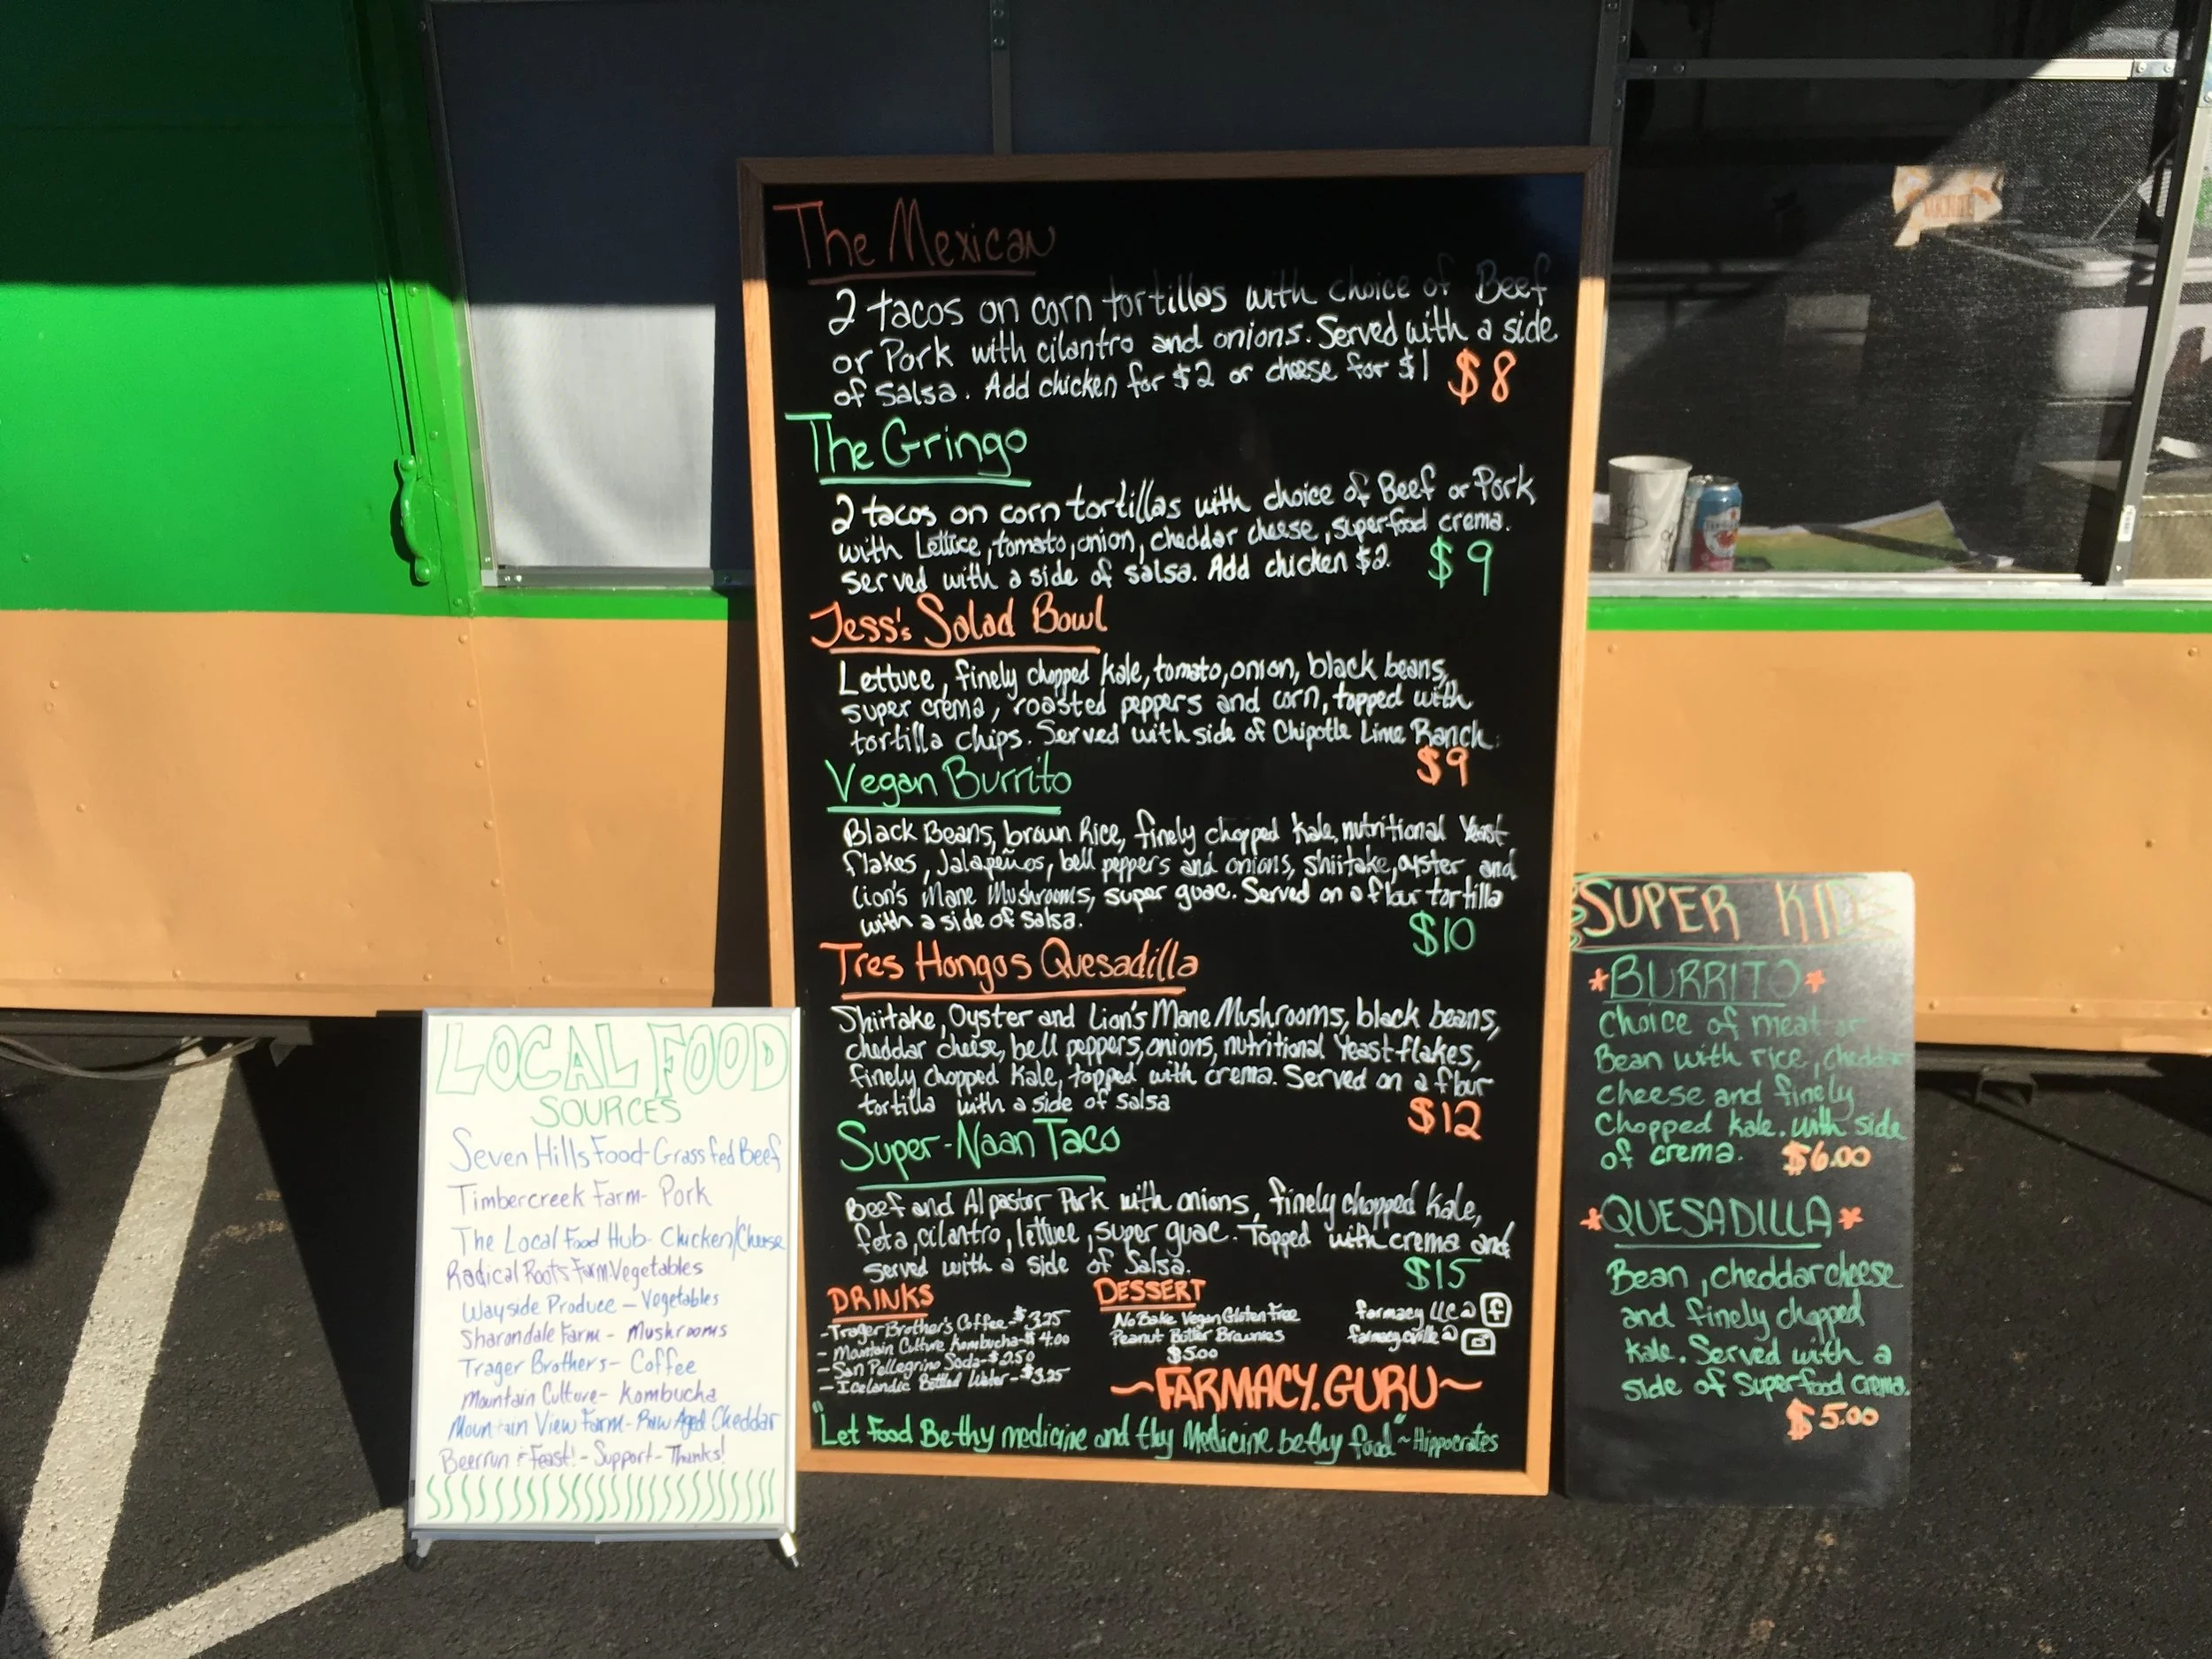 The Mexican
2 tacos on corn tortillas with choice of Beef
or Pork with cilantro and onions. Served with a side
of Salsa. Add chicken for $2 or cheese for $1 $8
The Gringo
2 tacos on corn tortillas with choice of Beef or Pork
with Lettuce, tomato, onion, cheddar cheese, superfood crema.
served with a side of salsa. Add chicken $2. $9
Jess's Salad Bowl
Lettuce, finely chopped kale, tomato, onion, black beans,
super crema, roasted peppers and corn, topped with
tortilla chips. Served with side of Chipotle Lime Ranch.
$9
Vegan Burrito
Black Beans, brown Rice, finely chopped kale, nutritional Yeast
flakes, Jalapeños, bell peppers and onions, shiitake, oyster and
Lion's Mane Mushrooms, super guac. Served on a flour tortilla
with a side of salsa. $10
Tres Hongos Quesadilla
Shiitake, Oyster and Lion's Mane Mushrooms, black beans,
cheddar cheese, bell peppers, onions, nutritional Yeast flakes,
finely chopped Kale, topped with crema. Served on a flour
tortilla with a side of salsa $12
Super-Naan Taco
Beef and Al pastor Pork with onions, finely chopped kale,
feta, cilantro, lettuce, super guac. Topped with crema and
served with a side of Salsa. $15
DRINKS
- Trager Brother's Coffee - $3.25
- Mountain Culture Kombucha - $4.00
- San Pellegrino Soda - $2.50
- Icelandic Bottled Water - $3.25
DESSERT
No Bake Vegan Gluten Free
Peanut Butter Brownies
$5.00
farmacy LLC @ f
farmacycville @
~FARMACY.GURU~
"Let Food Be thy medicine and thy Medicine be thy food" ~ Hippocrates
LOCAL FOOD
SOURCES
Seven Hills Food - Grass fed Beef
Timbercreek Farm - Pork
The Local Food Hub - Chicken/Cheese
Radical Roots Farm - Vegetables
Wayside Produce - Vegetables
Sharondale Farm - Mushrooms
Trager Brothers - Coffee
Mountain Culture - Kombucha
Mountain View Farm - Raw Aged Cheddar
Beer run & Feast! - Support - Thanks!
SUPER KID
*BURRITO*
Choice of meat or
Bean with rice, cheddar
cheese and finely
Chopped kale. with side
of crema. $6.00
*QUESADILLA*
Bean, cheddar cheese
and finely chopped
kale. Served with a
side of Superfood crema.
$5.00